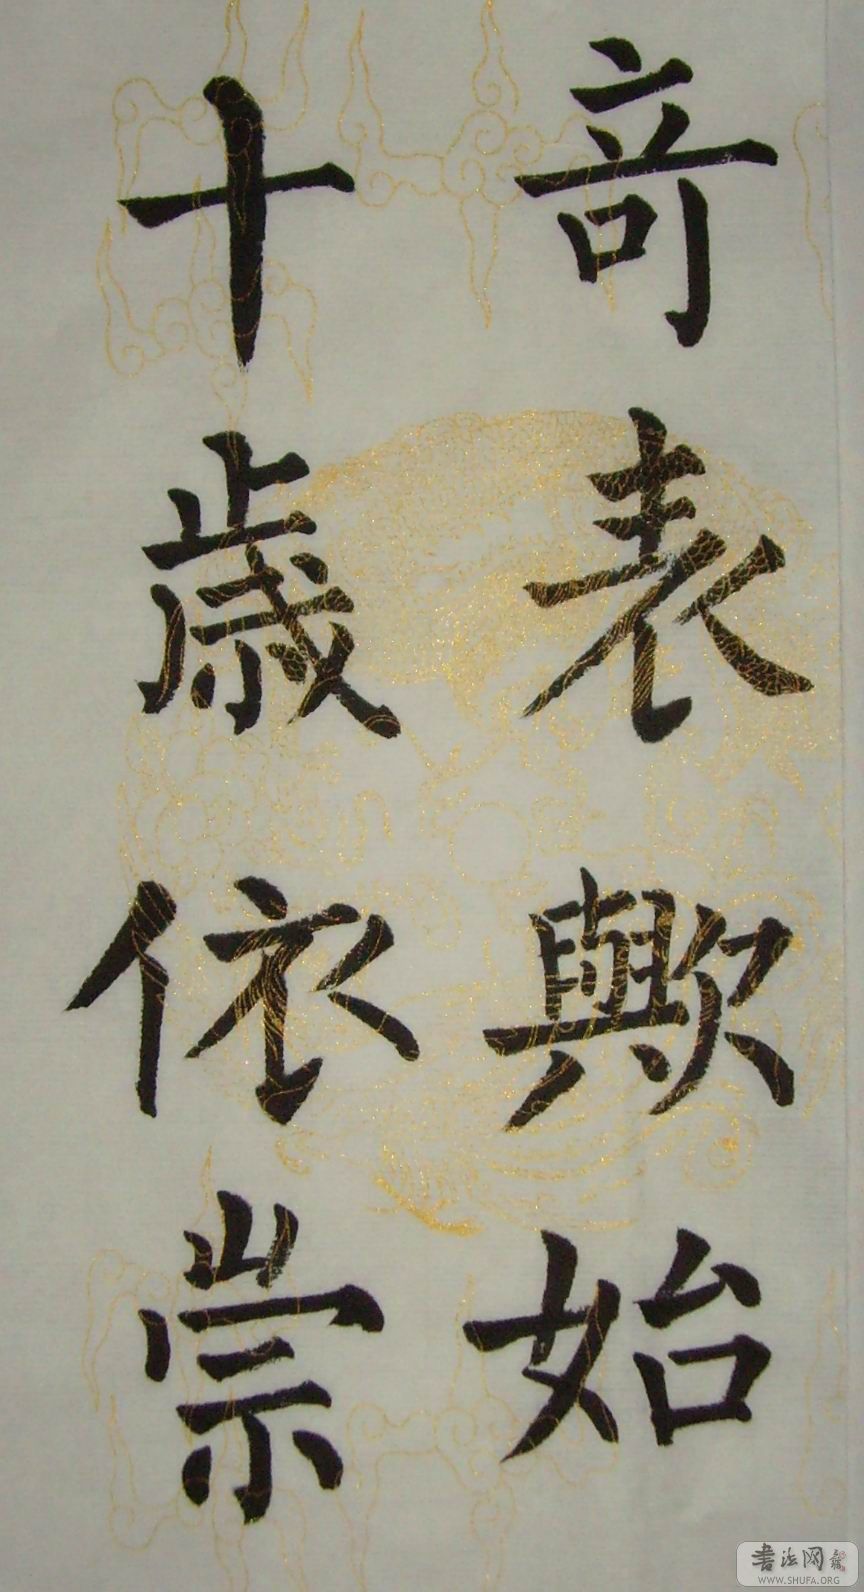 竒表歟始
十歳依崇
書法网
WWW.SHUFA.ORG